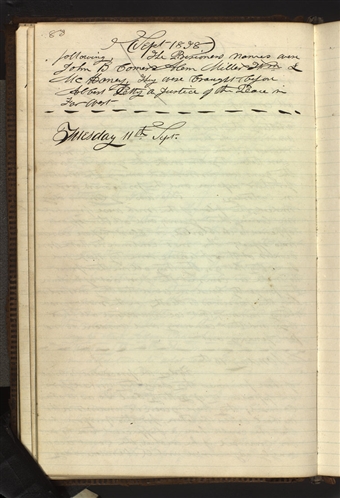 Sept 1838
following. The Prisoners names were
John B Comer Miller &
Mc Honey, they were brought before
Albert Petty a Justice of the Peace in
Far West
Tuesday 11th Sept.